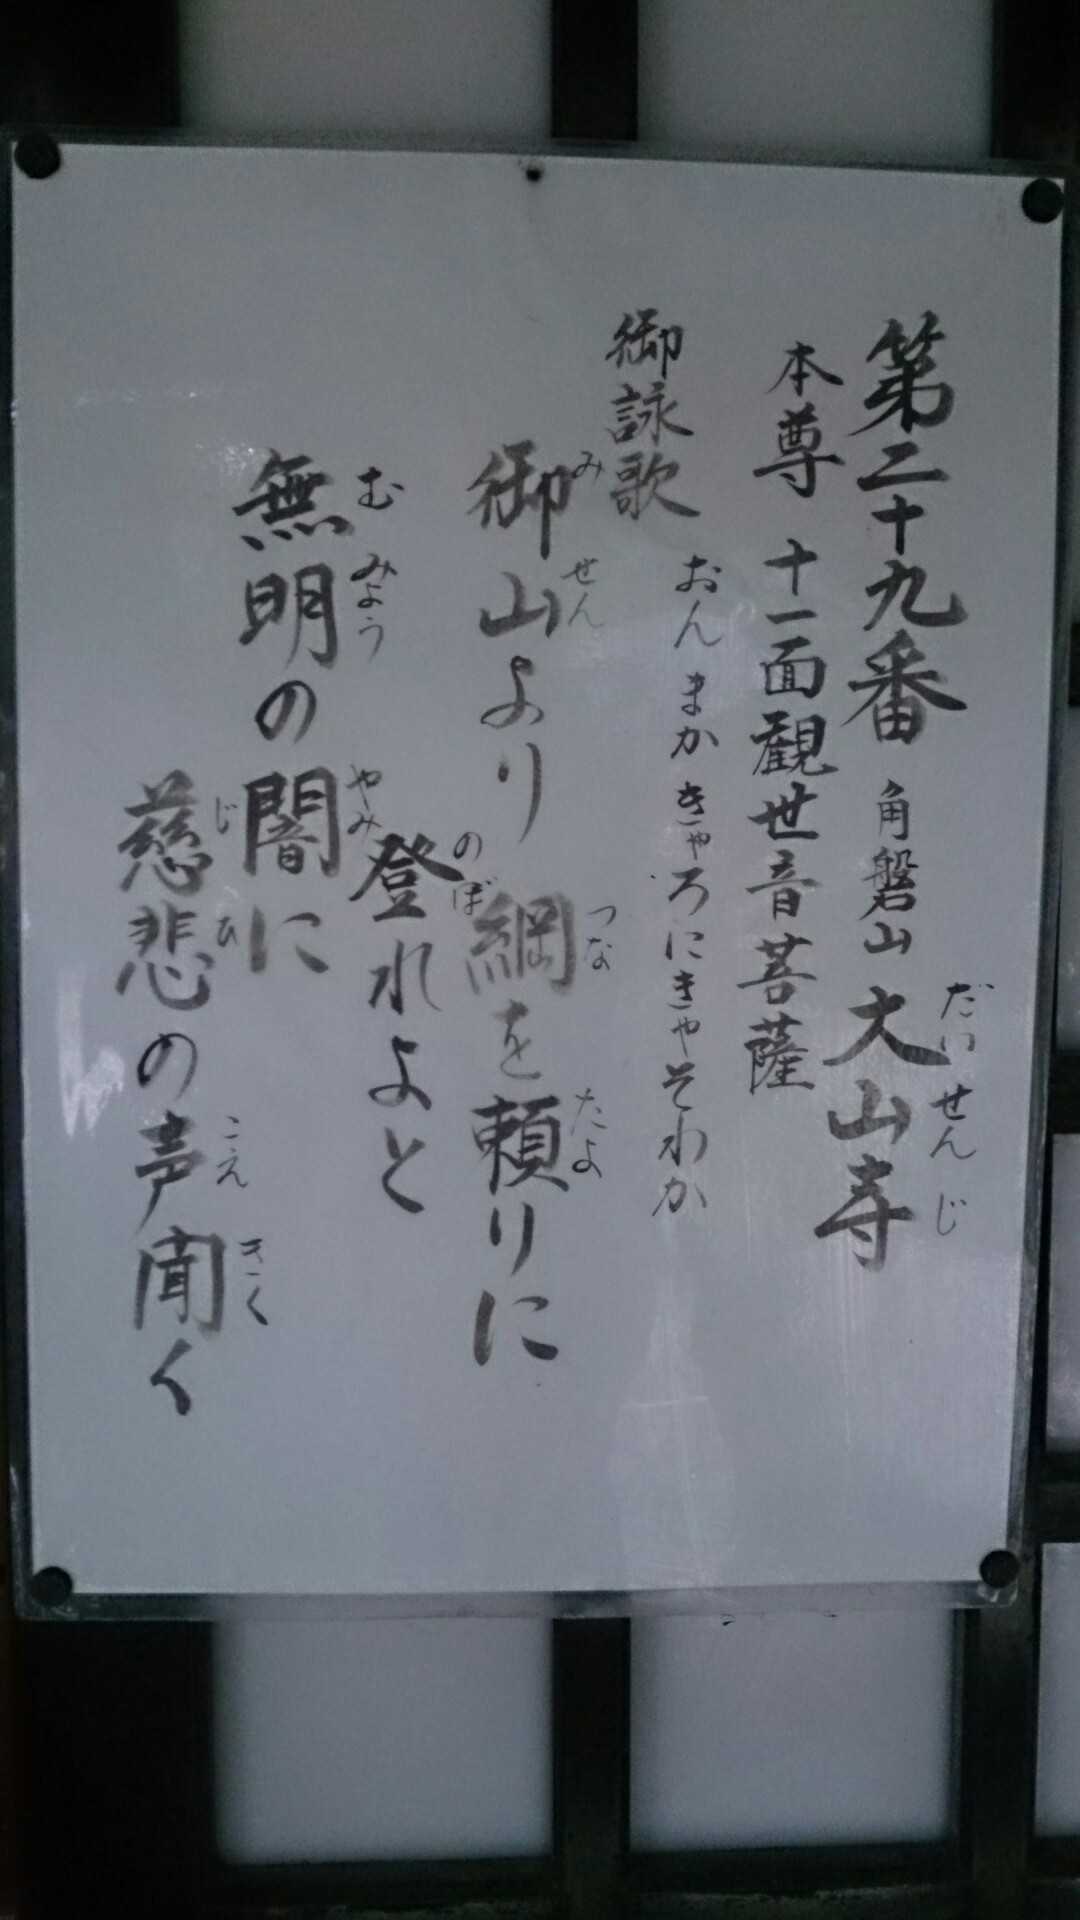 第二十九番 角磐山 大山寺
だいせんじ
本尊 十一面観世音菩薩
おん まか きゃろにきゃそわか
御詠歌
御山より 綱を頼りに
みせん つな たよ
登れよと
のぼ
無明の闇に
むみょう やみ
慈悲の声聞く
じひ こえ きく